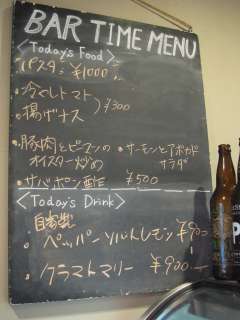 BAR TIME MENU
〈Today's Food〉
パスタ ¥1000
・冷やしトマト
・揚げナス
¥300
・豚肉とピーマンの
オイスター炒め
・サーモンとアボカド
サラダ
・サバポン酢 ¥500
〈Today's Drink〉
自家製
・ペッパーソルトレモン ¥900
・クラマトマリー ¥900